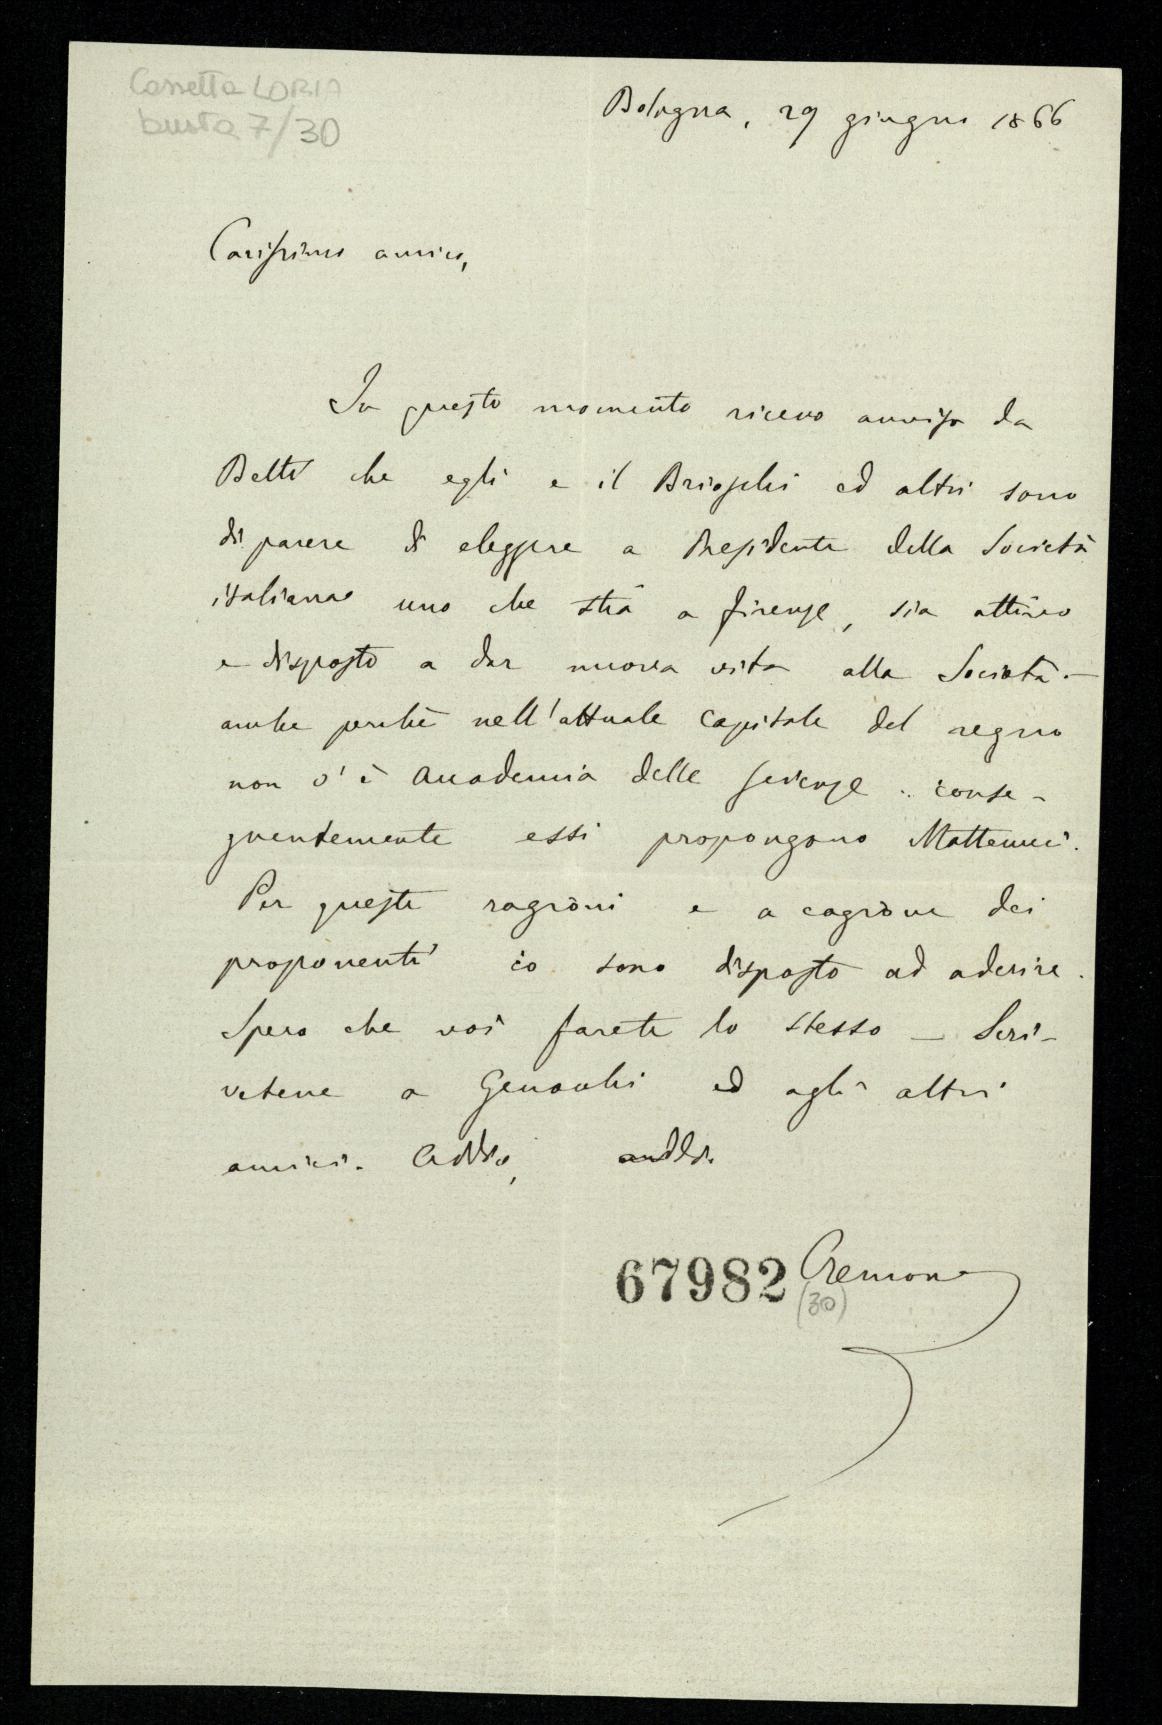 Cassetta LORIA
busta 7/30
Bologna, 29 giugno 1866
Carissimo amico,
In questo momento ricevo avviso da
Betti che egli e il Brioschi ed altri sono
di parere di eleggere a Presidente della Società
italiana uno che stia a Firenze, sia attivo
e disposto a dar nuova vita alla Società. —
anche perchè nell'attuale capitale del regno
non v'è Accademia delle Scienze: conse-
guentemente essi propongono Matteucci.
Per queste ragioni e a cagione dei
proponenti io sono disposto ad aderire.
Spero che voi farete lo stesso — Scri-
vetene a Genocchi ed agli altri
amici. Addio, addio.
67982 Cremona
(30)